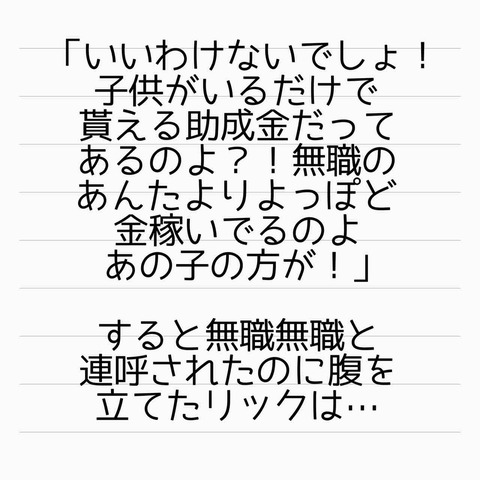 「いいわけないでしょ！
子供がいるだけで
貰える助成金だって
あるのよ？！無職の
あんたよりよっぽど
金稼いでるのよ
あの子の方が！」
すると無職無職と
連呼されたのに腹を
立てたリックは…